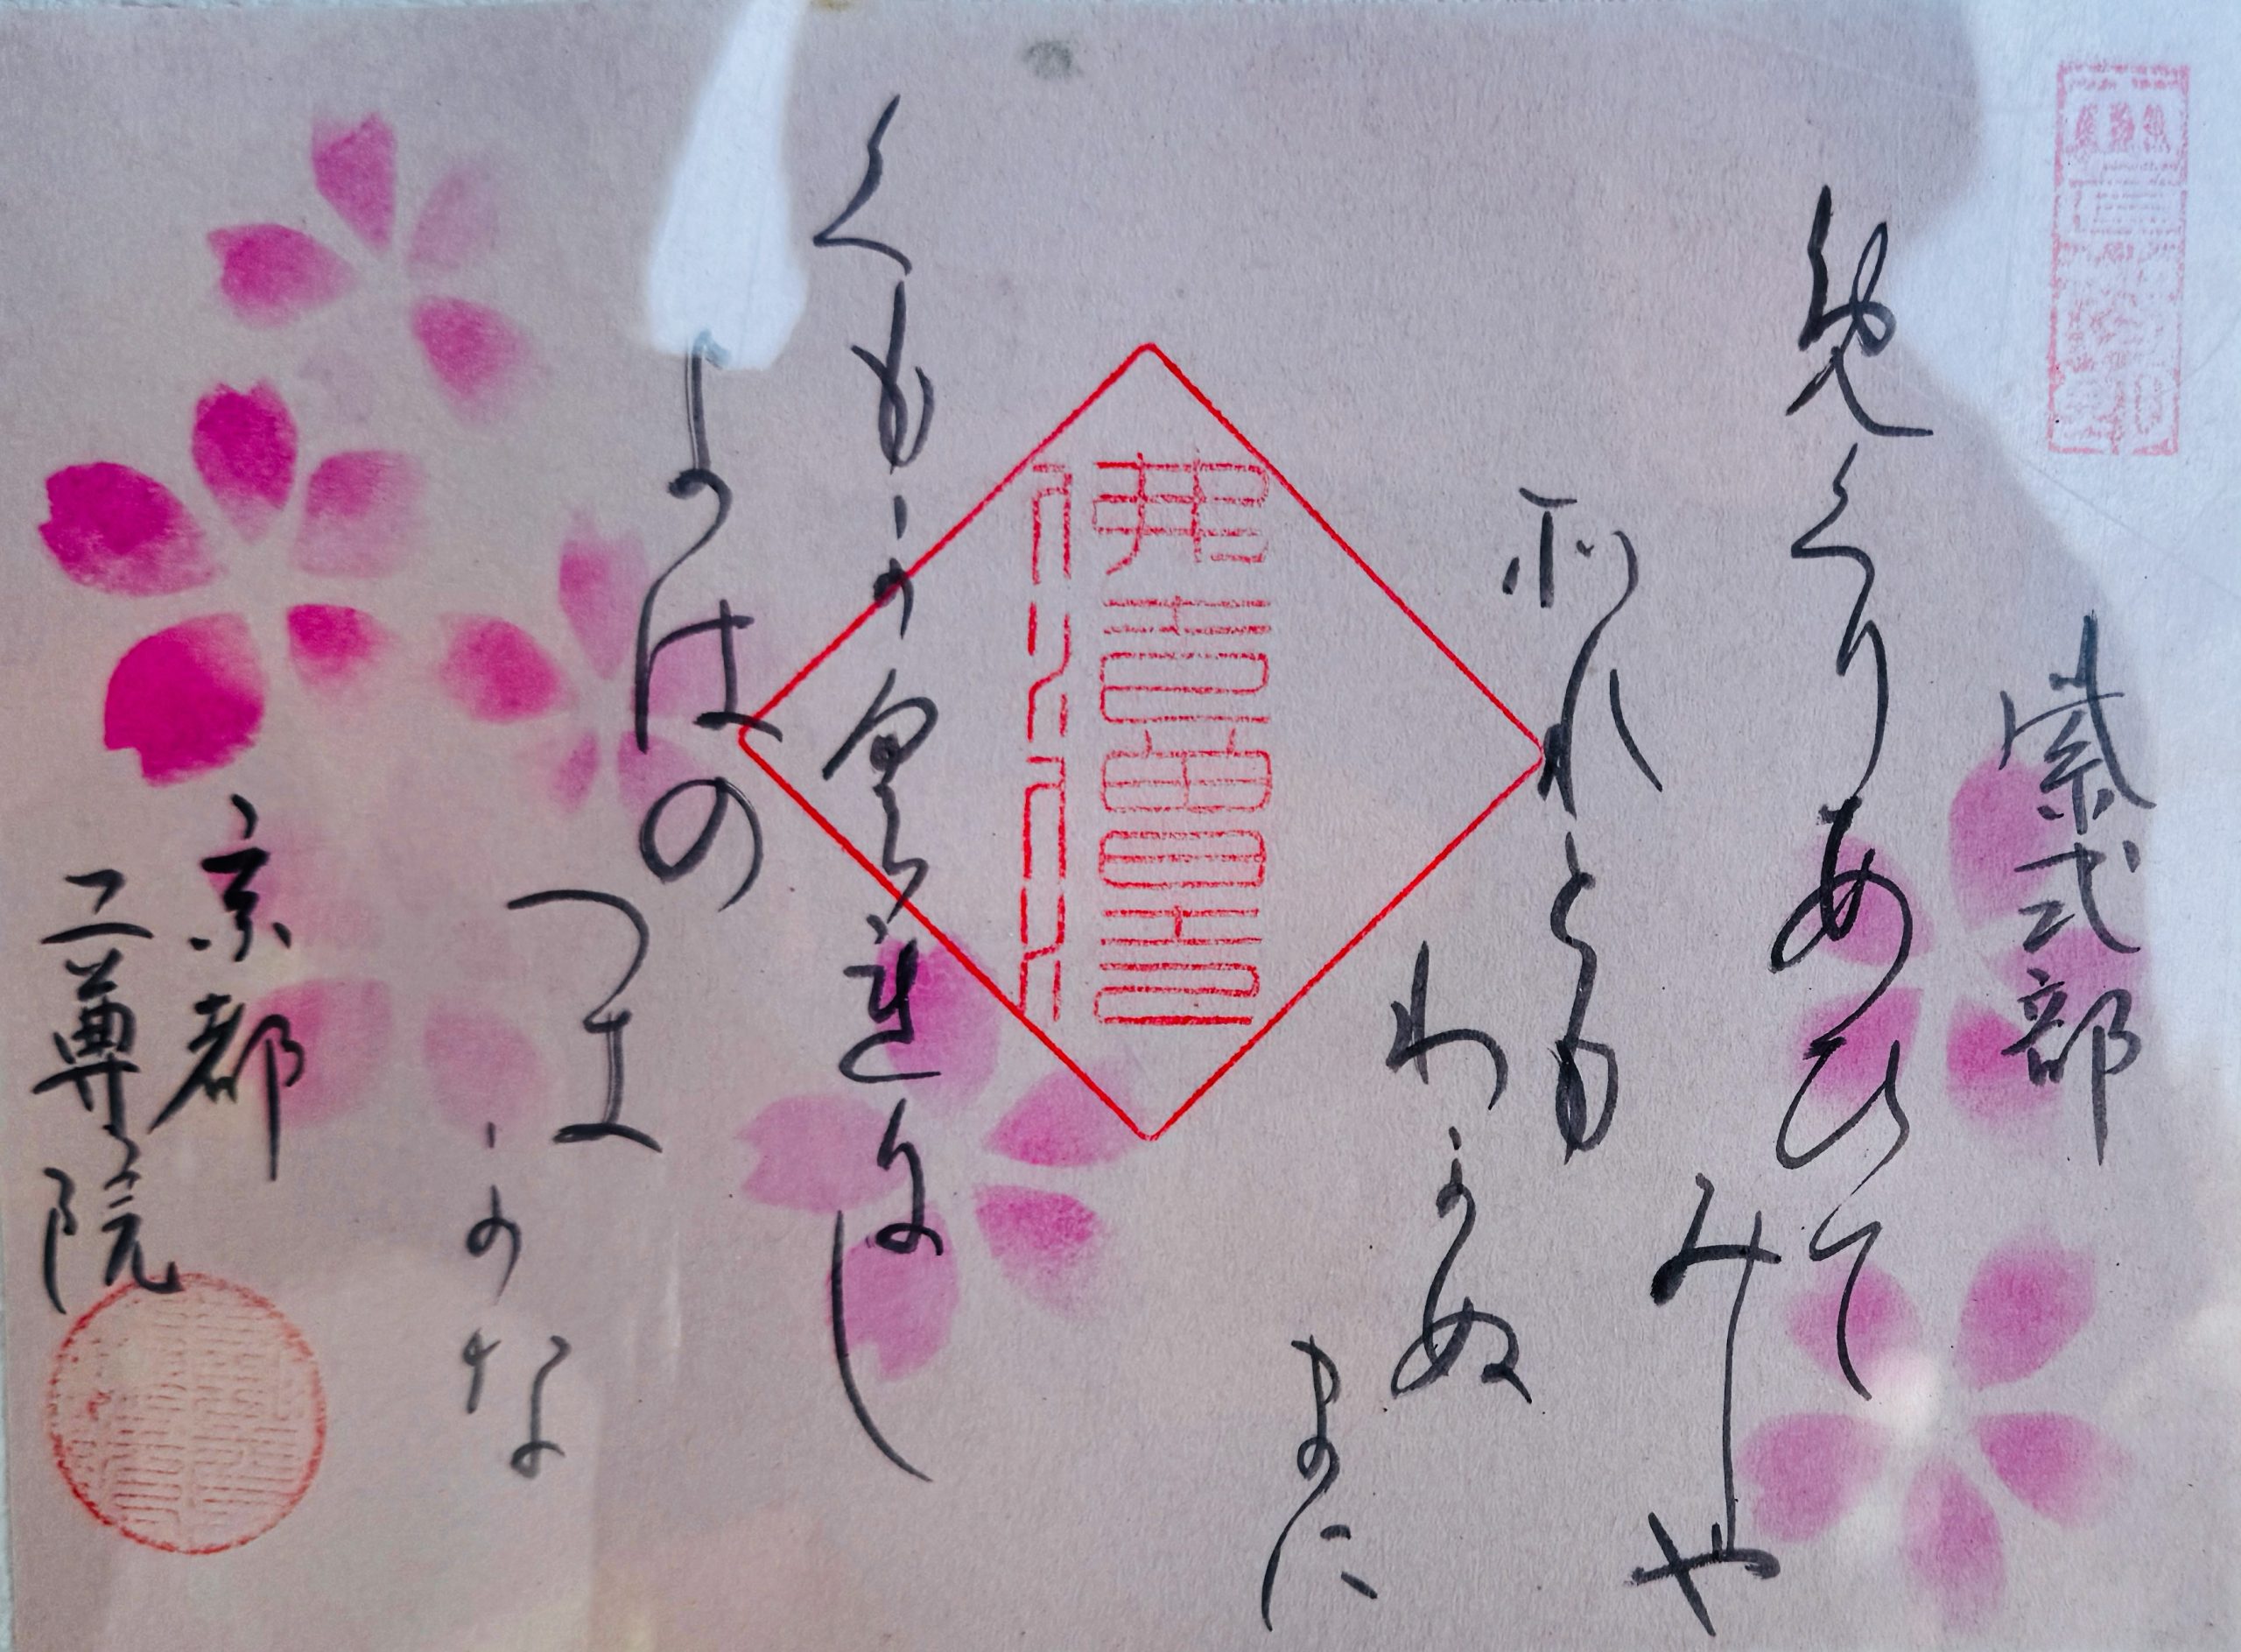 紫式部
めくりあひて
みしや
それとも
わかぬ
まに
くもかくれにし
よはの
つき
かな
京都
二尊院